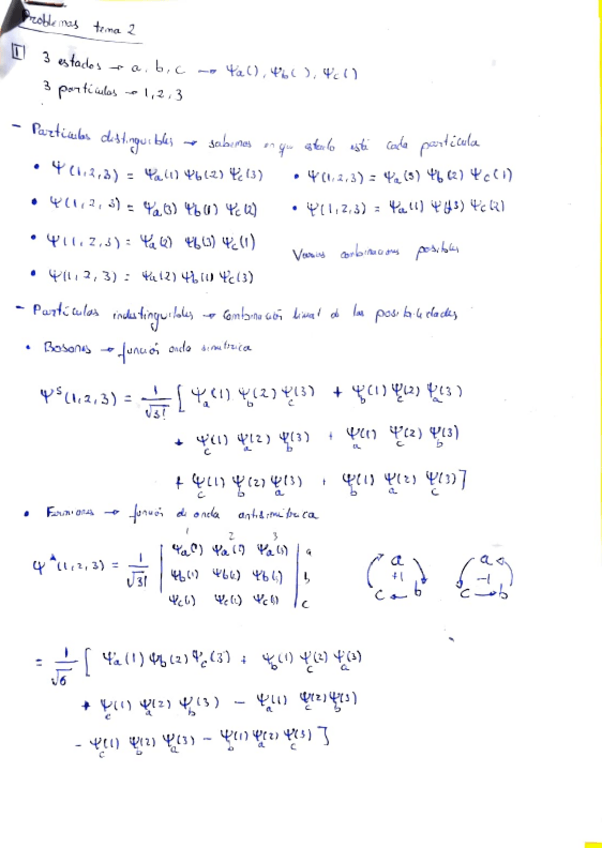 Problemas tema 2
1 3 estados → a, b, c → Ψa( ), Ψb( ), Ψc( )
3 partículas → 1, 2, 3
- Partículas distinguibles → sabemos en qu estado está cada partícula
• Ψ(1,2,3) = Ψa(1) Ψb(2) Ψc(3) • Ψ(1,2,3) = Ψa(3) Ψb(2) Ψc(1)
• Ψ(1,2,3) = Ψa(3) Ψb(1) Ψc(2) • Ψ(1,2,3) = Ψa(1) Ψb(3) Ψc(2)
• Ψ(1,2,3) = Ψa(2) Ψb(3) Ψc(1) Varias combinaciones posibles
• Ψ(1,2,3) = Ψa(2) Ψb(1) Ψc(3)
- Partículas indistinguibles → Combinación lineal de las posibilidades
• Bosones → función onda simétrica
Ψ^S(1,2,3) = 1/√3! [ Ψa(1) Ψb(2) Ψc(3) + Ψb(1) Ψc(2) Ψa(3)
+ Ψc(1) Ψa(2) Ψb(3) + Ψa(1) Ψc(2) Ψb(3)
+ Ψc(1) Ψb(2) Ψa(3) + Ψb(1) Ψa(2) Ψc(3) ]
• Fermiones → función de onda antisimétrica
1 2 3
Ψ^A(1,2,3) = 1/√3! | Ψa(1) Ψa(2) Ψa(3) | a
Ψb(1) Ψb(2) Ψb(3) b
Ψc(1) Ψc(2) Ψc(3) c
a +1 c b a -1 c b
= 1/√6 [ Ψa(1) Ψb(2) Ψc(3) + Ψb(1) Ψc(2) Ψa(3)
+ Ψc(1) Ψa(2) Ψb(3) - Ψa(1) Ψc(2) Ψb(3)
- Ψc(1) Ψb(2) Ψa(3) - Ψb(1) Ψa(2) Ψc(3) ]